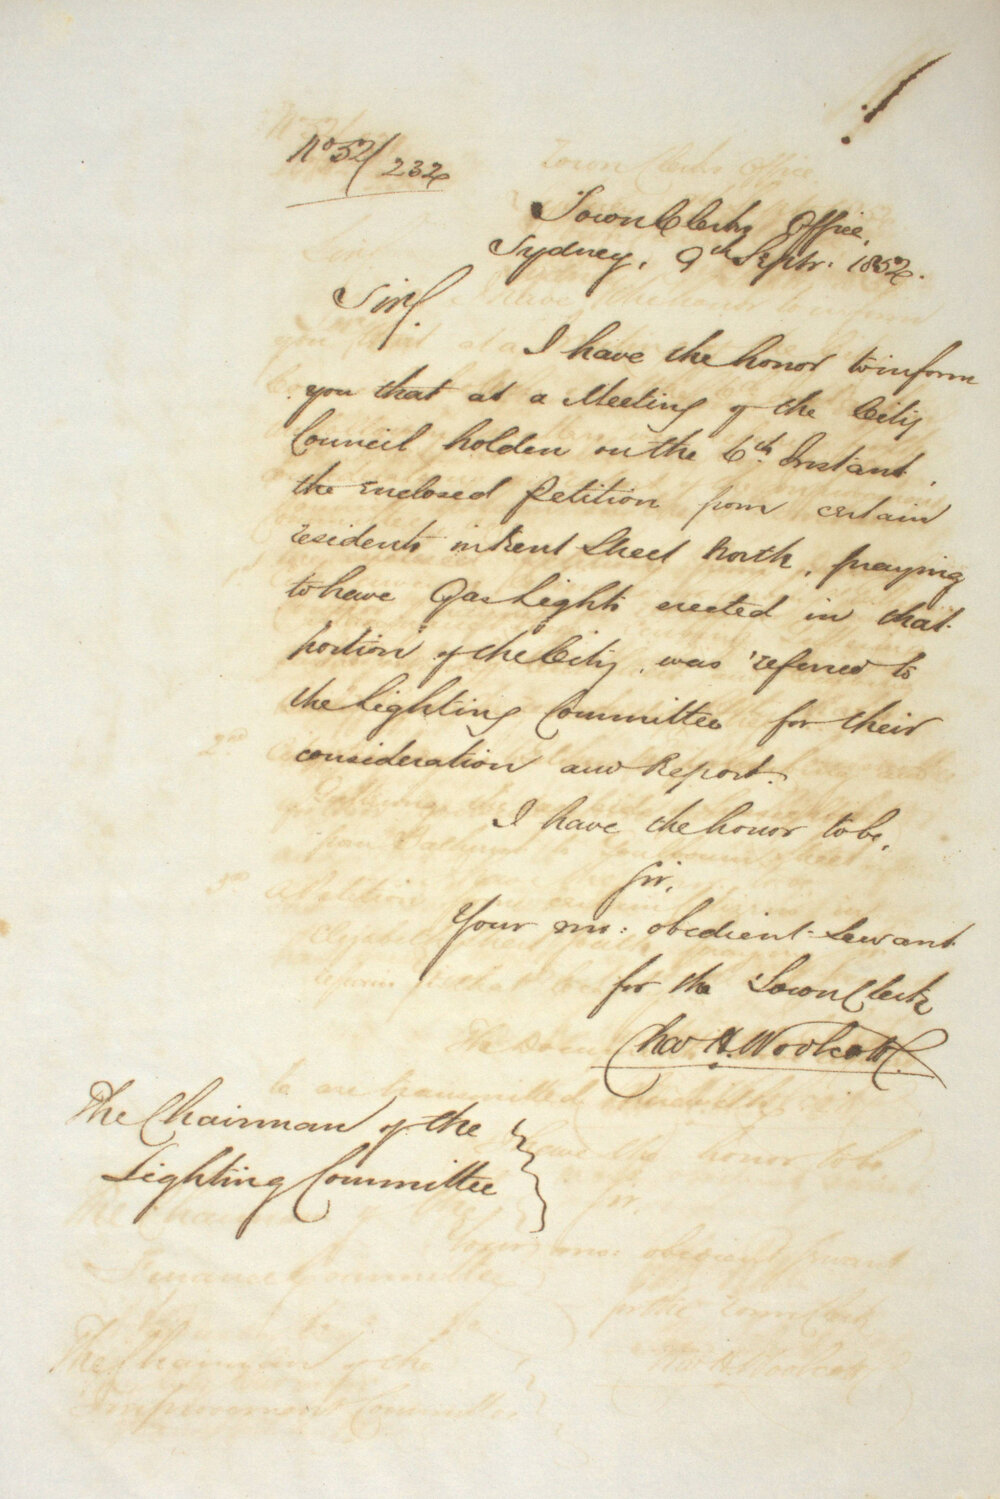 No 52/232
Town Clerks Office,
Sydney, 9th Septr. 1852.
Sir,
I have the honor to inform
you that at a Meeting of the City
Council holden on the 6th Instant,
the enclosed Petition from certain
residents in Kent Street North, praying
to have Gas Lights erected in that
portion of the City, was referred to
the Lighting Committee for their
consideration and Report.
I have the honor to be,
Sir,
Your mo: obedient Servant
for the Town Clerk
Chas H. Woolcott.
The Chairman of the
Lighting Committee